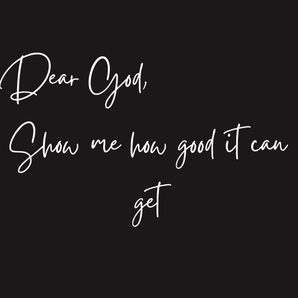 Dear God,
Show me how good it can
get